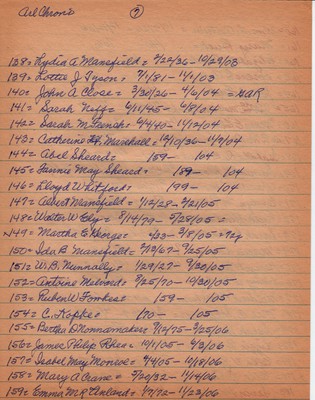 Arl Chron's
7
138= Lydia A Mansfield= 2/22/36-10/29/03
139= Lottie J Tyson= 7/1/81- 11/1/03
140= John A Close= 3/30/26- 4/6/04 = GAR
141= Sarah Kiff= 6/11/45- 6/8/04
142= Sarah M French= 6/4/40-11/12/04
143= Catherine Marshall= 12/10/36-11/9/04
144= Abel Sheard= 159- 104
145= Fannie May Sheard= 189- 104
146= Lloyd Whitford= 199- 104
147= Albert Mansfield= 1/12/28- 3/21/05
148= Walter W Ely= 8/14/79- 5/28/05 =
149= Martha E George= -23- 3/8/05=72y
150= Ida B Mansfield= 7/2/67- 3/25/05
151= W.B. Nunnally= 4/29/27- 9/30/05
152= Antoine = 8/25/70-10/30/05
153= Ruben W Fowkes= 159- 105
154= C. Kopke= 170- 105
155= Bertha D Nonnamaker= 9/12/75-2/25/06
156= James Philip Rhea= 10/1/05- 4/3/06
157= Isabel May Monroe= 4/4/05- 10/18/06
158= Mary A Crane= 2/20/32- 11/14/06
159= Emma M R Cleland= 1/9/72- 11/23/06